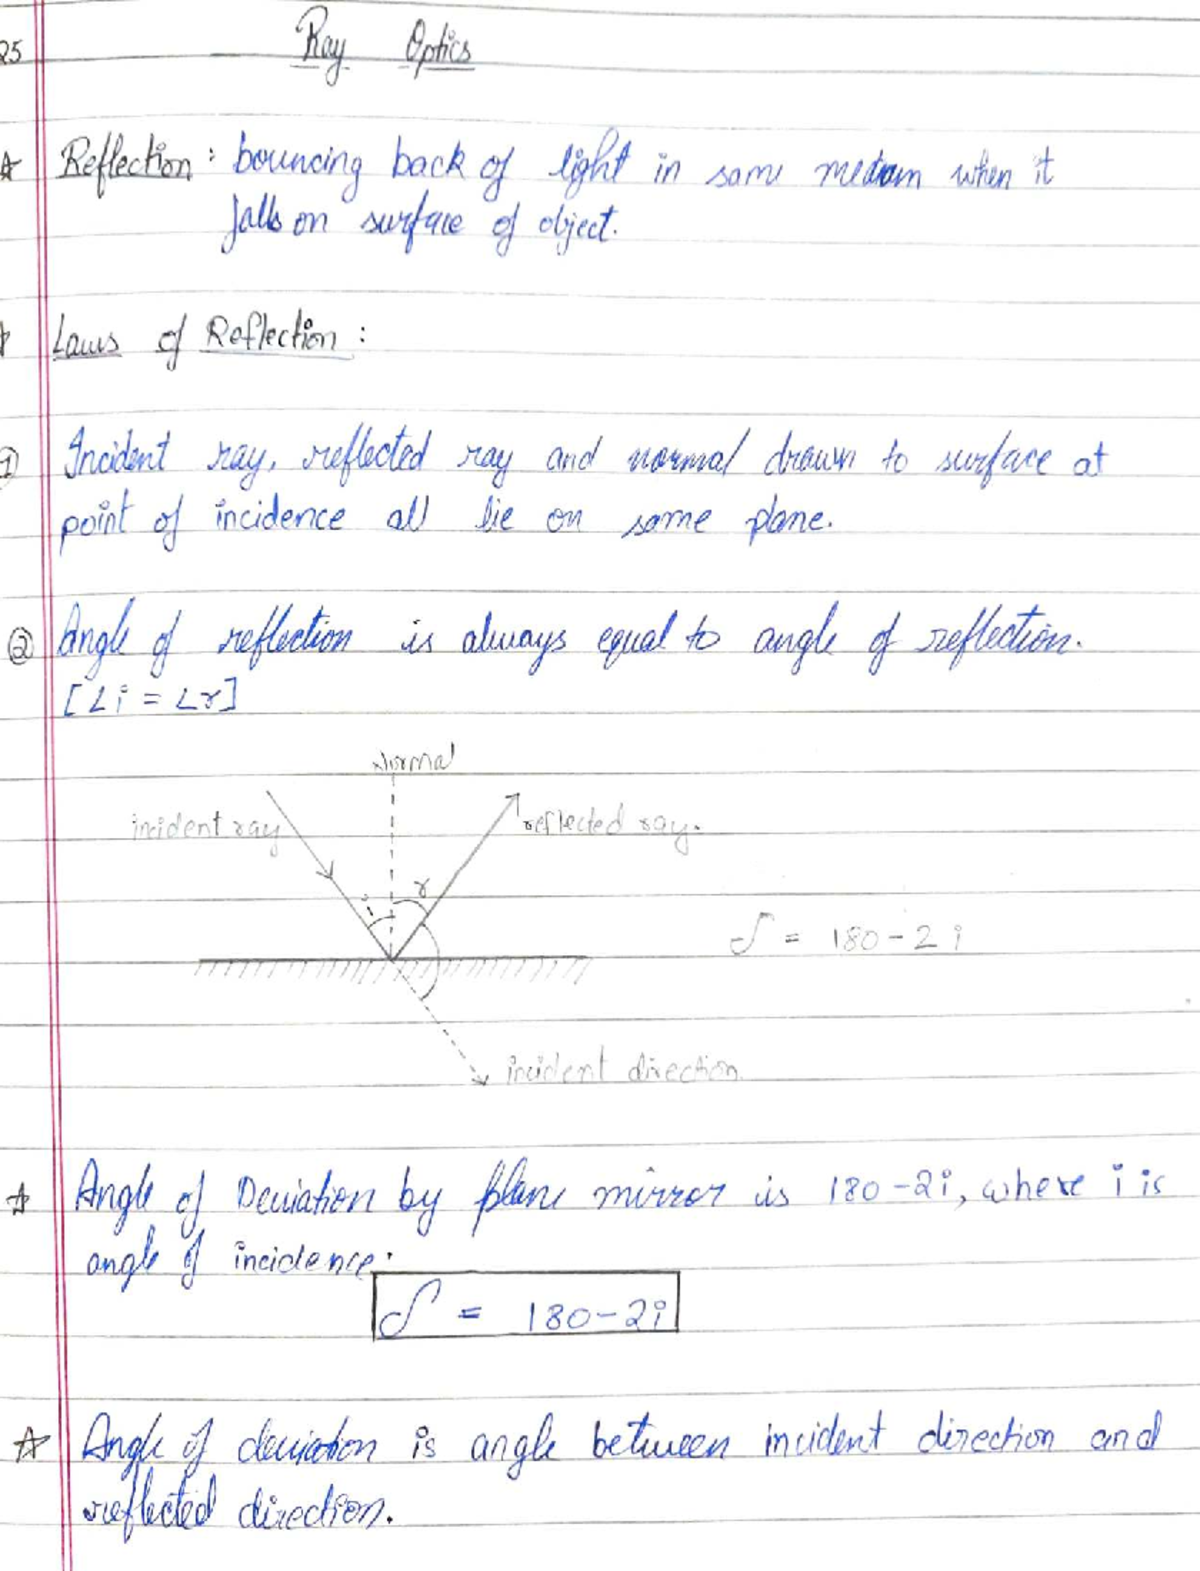 25
Ray Optics
☆ Reflection : bouncing back of light in same medium when it
falls on surface of object.
Laws of Reflection :
① Incident ray, reflected ray and normal drawn to surface at
point of incidence all lie on same plane.
② Angle of reflection is always equal to angle of reflection.
[∠i = ∠r]
Normal
incident ray
reflected ray.
i
r
δ = 180-2i
incident direction
☆ Angle of Deviation by plane mirror is 180-2i, where i is
angle of incidence.
δ = 180-2i
☆ Angle of deviation is angle between incident direction and
reflected direction.